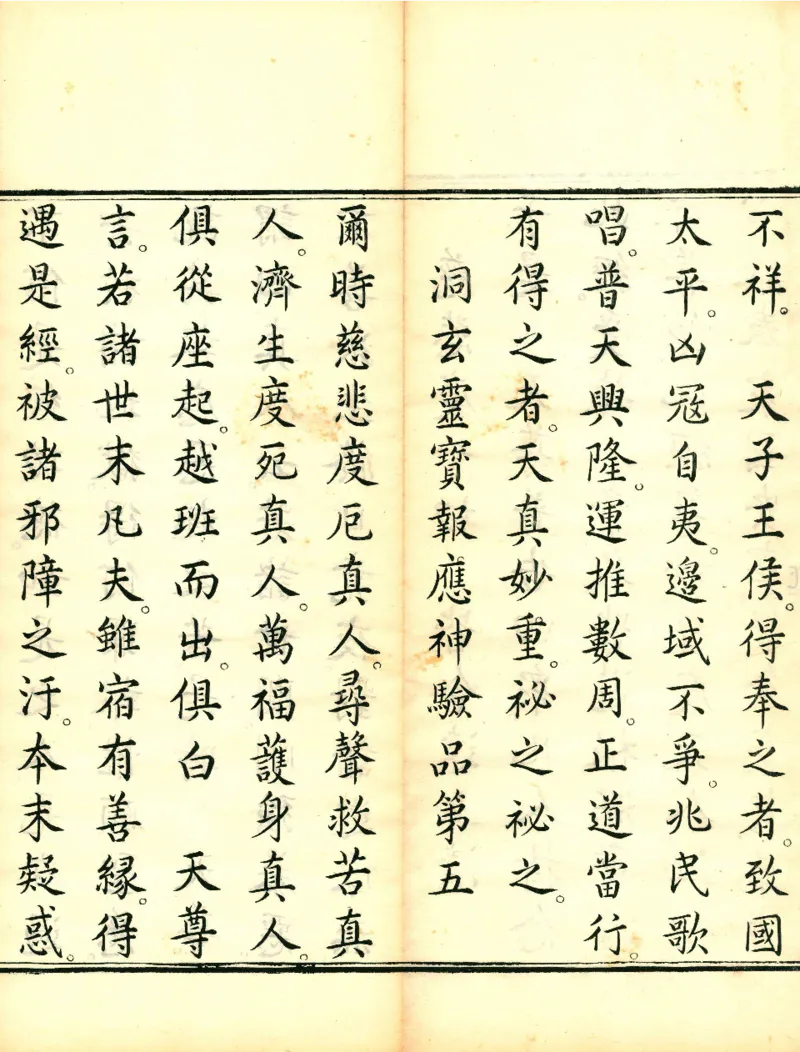 不祥。　天子王侯。得奉之者。致國
太平。凶冦自夷。邊域不爭。兆民歌
唱。普天興隆。運推數周。正道當行。
有得之者。天真妙重。祕之祕之。
洞玄靈寶報應神驗品第五
爾時慈悲度厄真人。尋聲救苦真
人。濟生度死真人。萬福護身真人。
俱從座起。越班而出。俱白　天尊
言。若諸世末凡夫。雖宿有善緣。得
遇是經。被諸邪障之汙。本末疑惑。